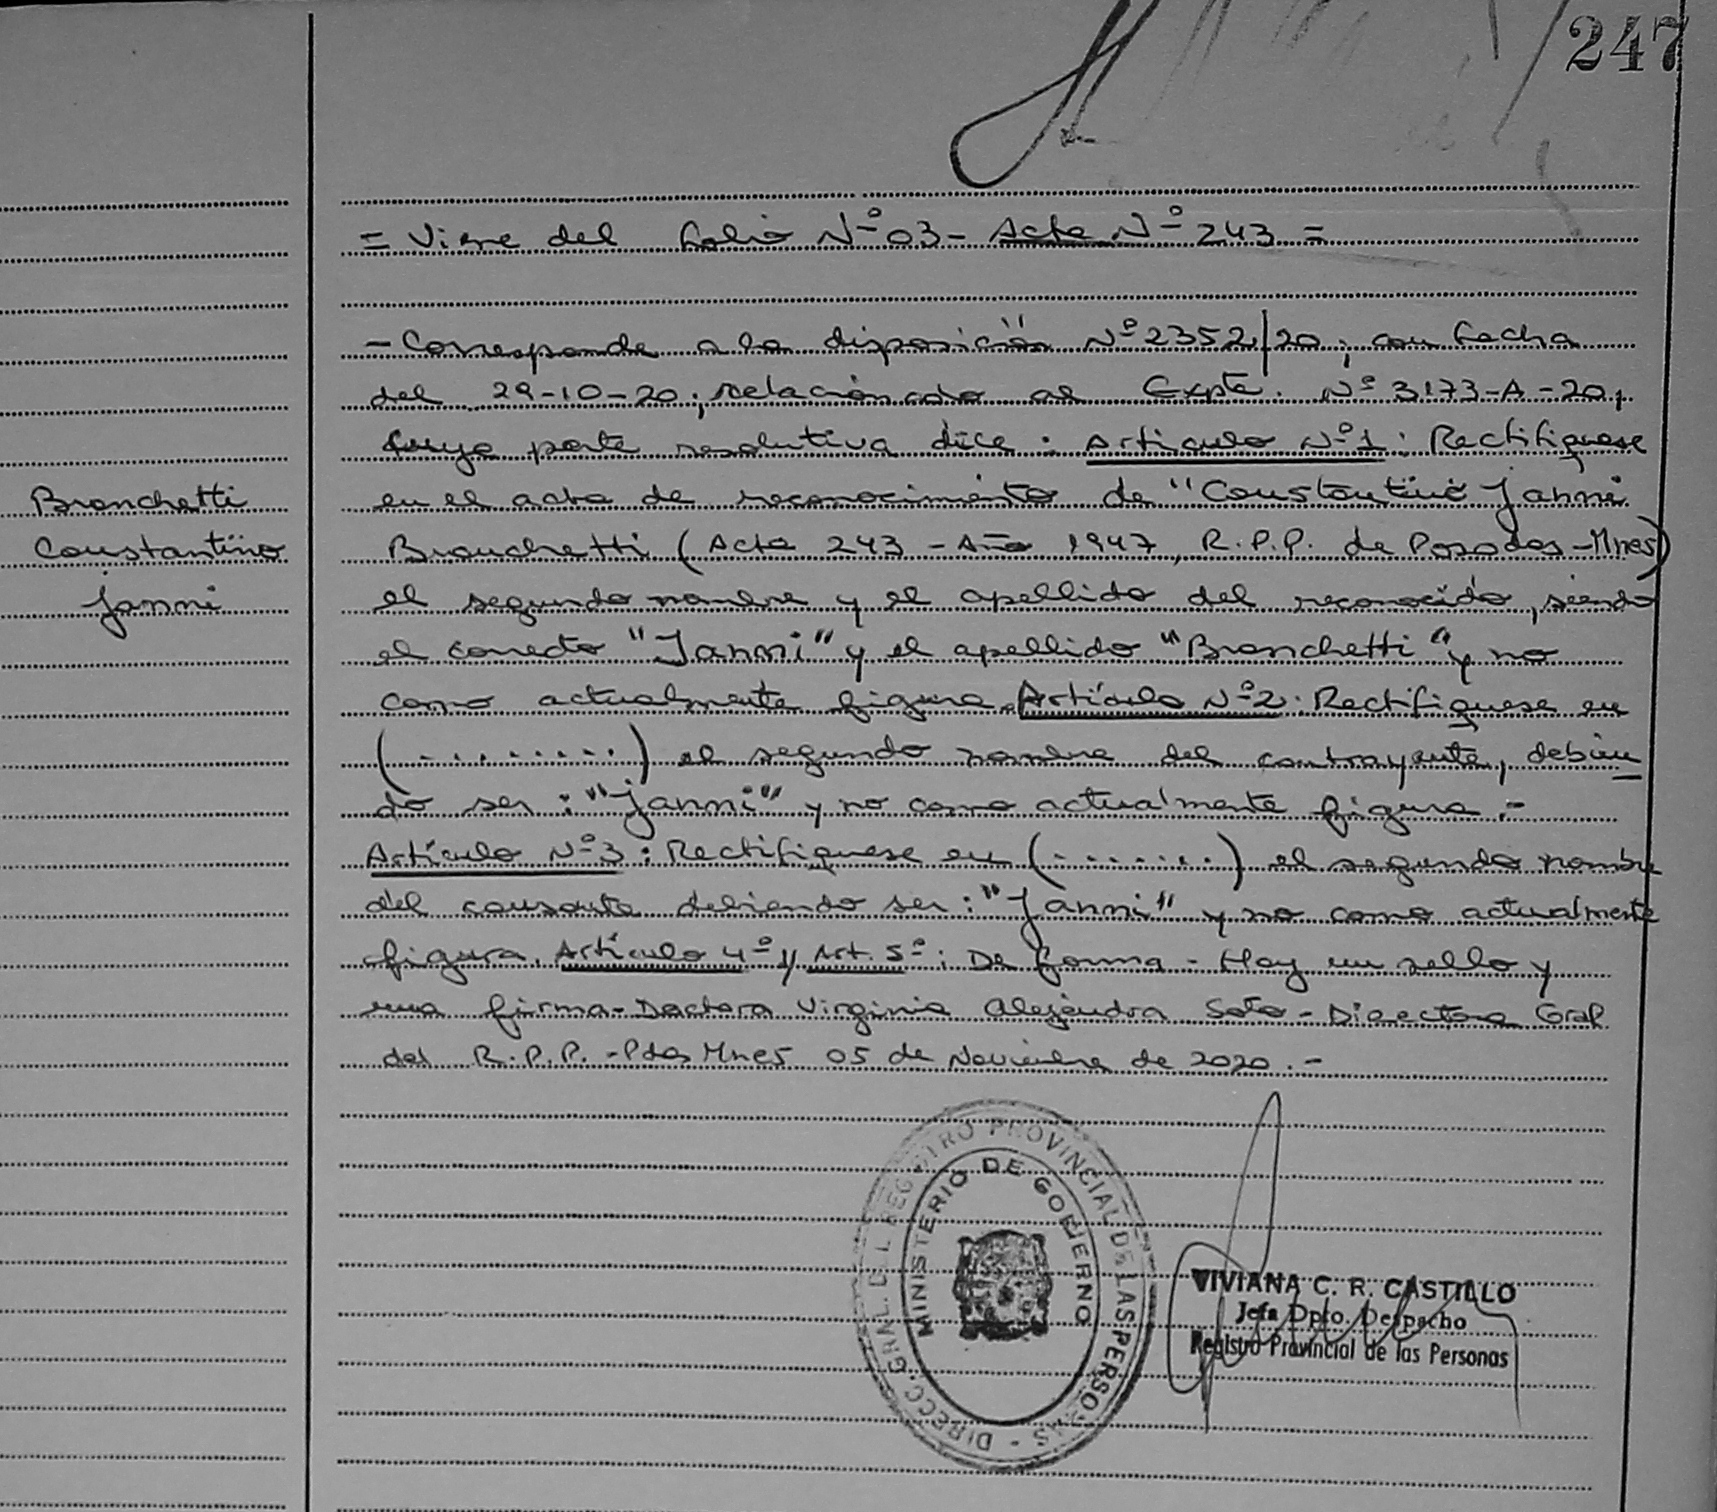 247
= Viene del Folio Nº 03 - Acta Nº 243 =
- Corresponde a la disposición Nº 2352/20; con fecha
del 29-10-20; relacionado al Expte. Nº 3173-A-20,
cuya parte resolutiva dice: Articulo Nº 1: Rectifiquese
en el acta de reconocimiento de "Constantino Janni
Bronchetti
Constantino
Janni
Branchetti (Acta 243 - Año 1947, R.P.P. de Posadas - Mnes)
el segundo nombre y el apellido del reconocido, siendo
el correcto "Janni" y el apellido "Bronchetti" y no
como actualmente figura. Artículo Nº 2: Rectifiquese en
(.........) el segundo nombre del contrayente, debien
do ser: "Janni" y no como actualmente figura.-
Artículo Nº 3: Rectifiquese en (........) el segundo nombre
del causante debiendo ser: "Janni" y no como actualmente
figura. Artículo 4º y Art. 5º: De forma - Hay un sello y
una firma - Doctora Virginia Alejandra Soto - Directora Gral
del R.P.P. - Pdas Mnes 05 de Noviembre de 2020.-
DIRECC. GRAL. DEL REGISTRO PROVINCIAL DE LAS PERSONAS
MINISTERIO DE GOBIERNO
VIVIANA C. R. CASTILLO
Jefa Dpto. Despacho
Registro Provincial de las Personas